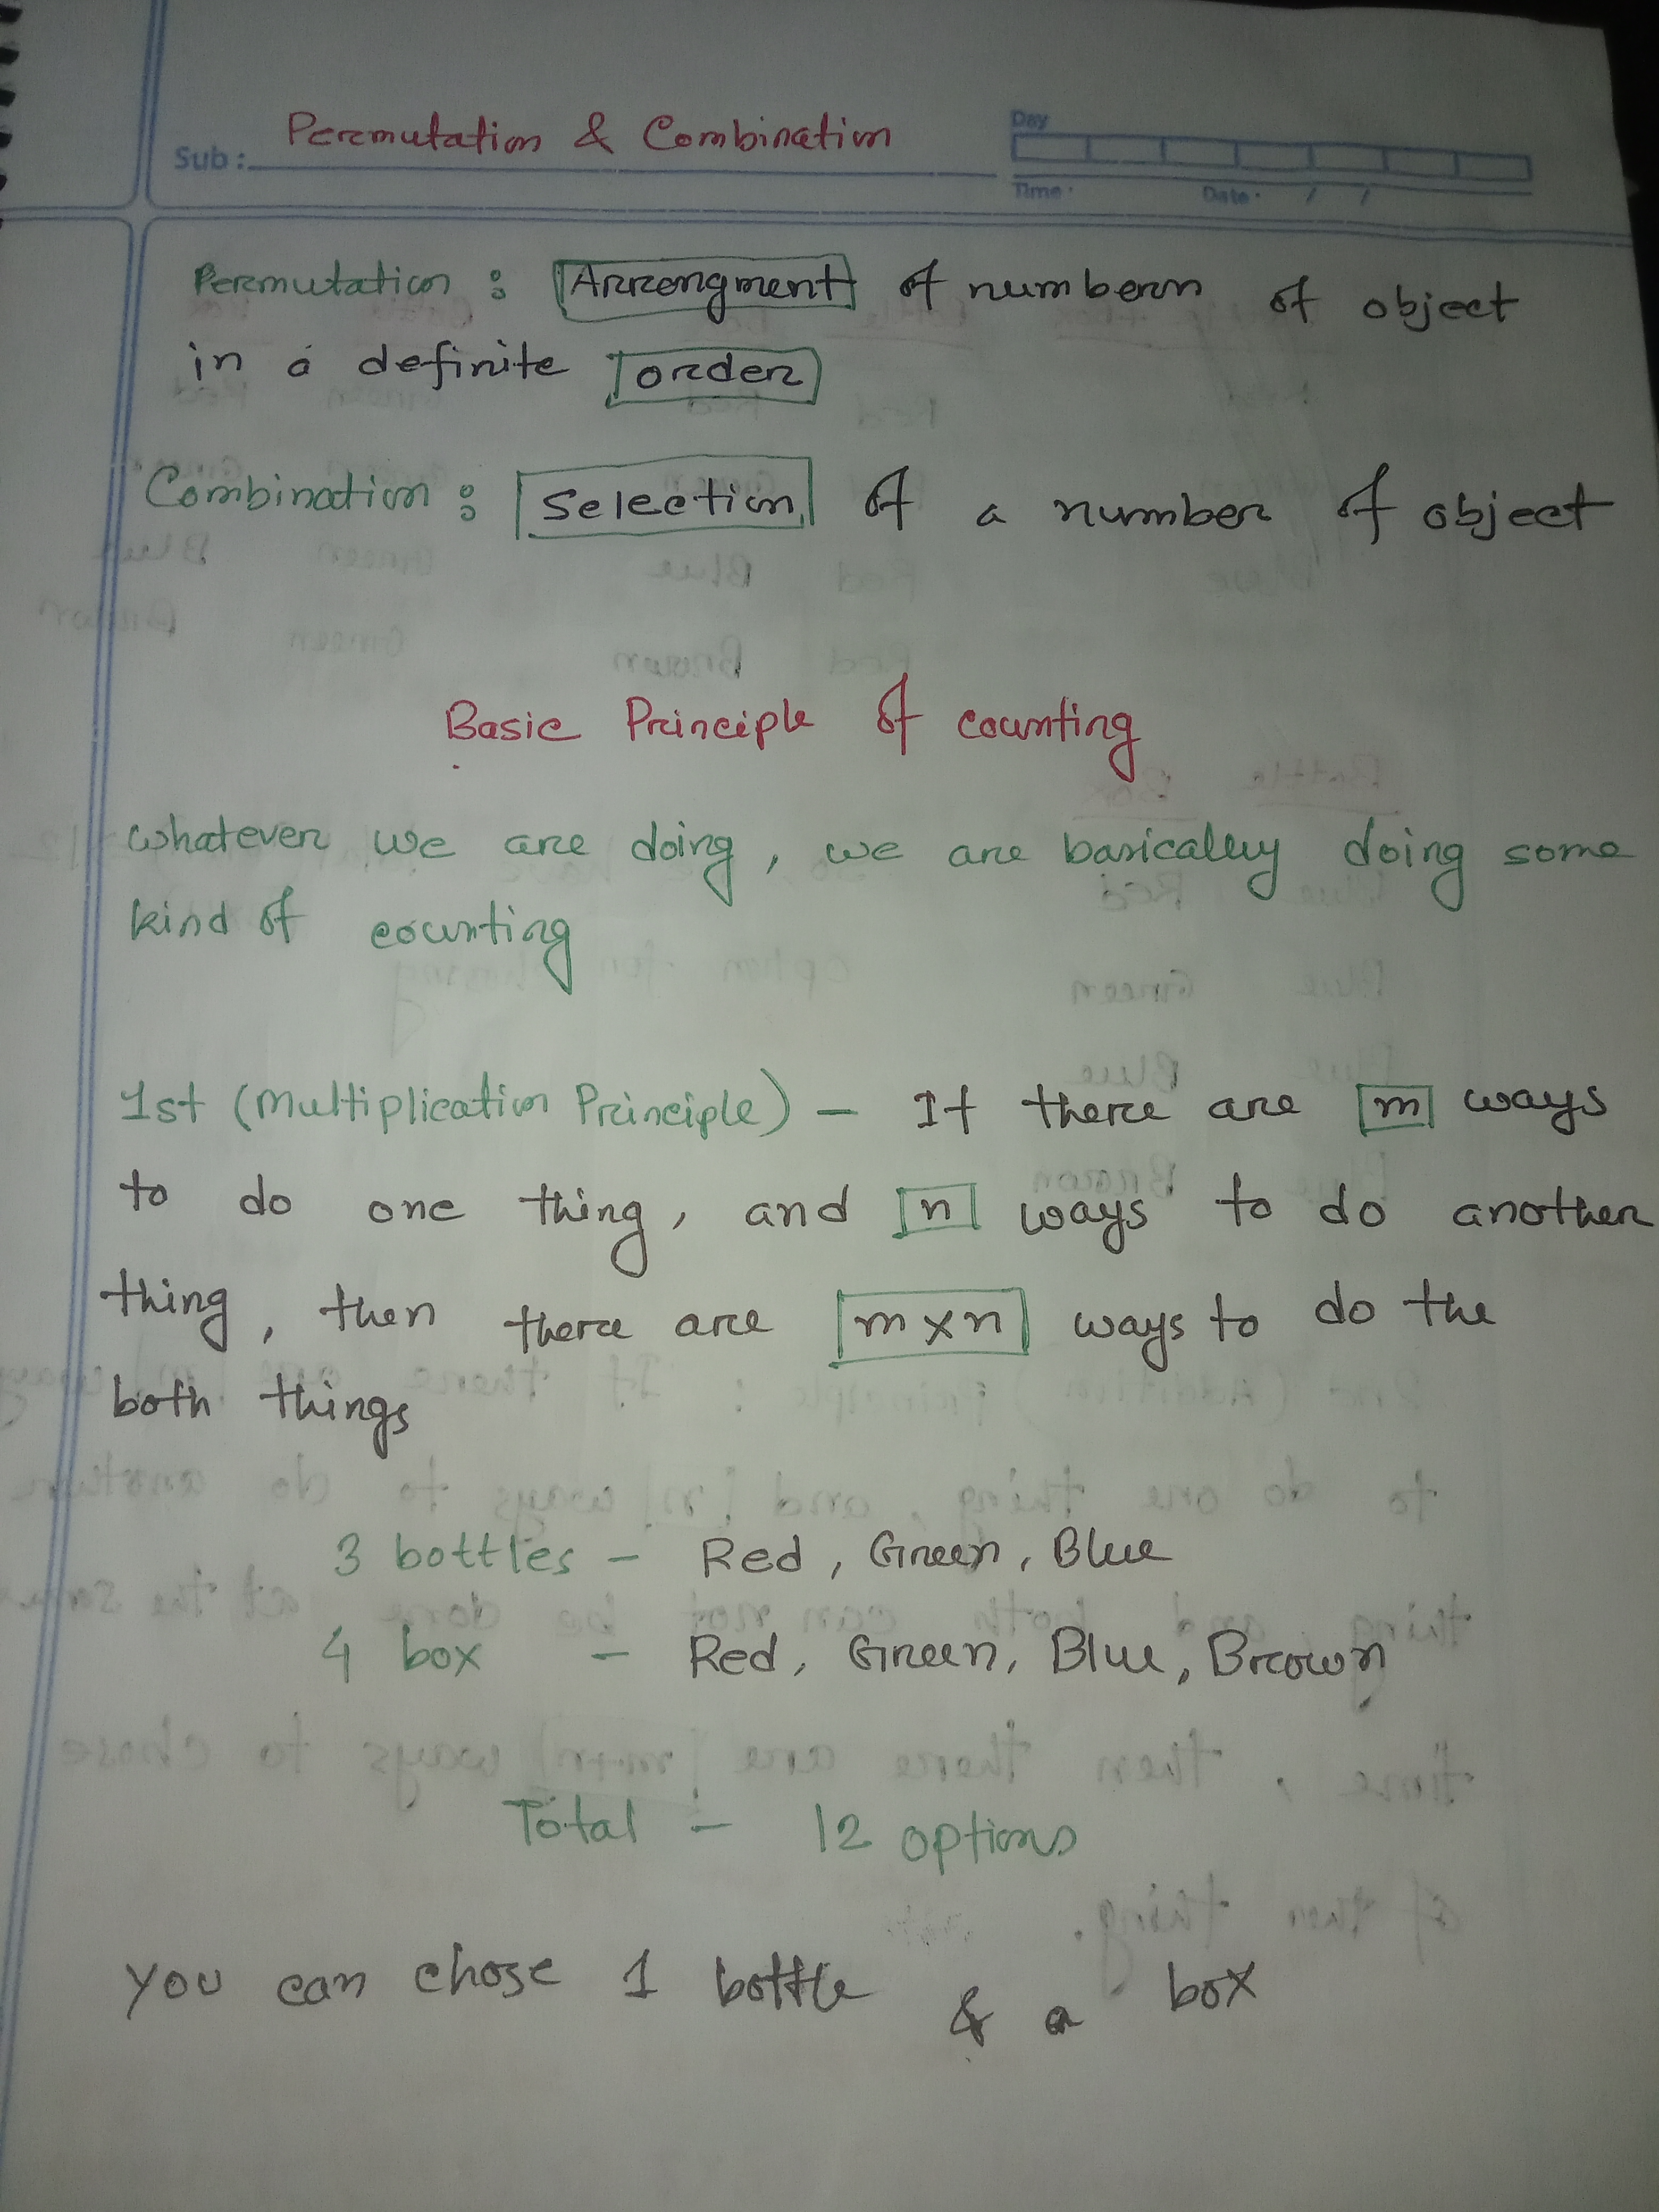 Permutation & Combination
Sub :
Day
Time :
Date : / /
Permutation : Arrengment of number of object
in a definite order
Combination : Selection of a number of object
Basic Principle of counting
whatever we are doing, we are basically doing some
kind of counting
1st (Multiplication Principle) – If there are m ways
to do one thing, and n ways to do another
thing, then there are m x n ways to do the
both things
3 bottles – Red, Green, Blue
4 box – Red, Green, Blue, Brown
Total – 12 options
you can chose 1 bottle & a box